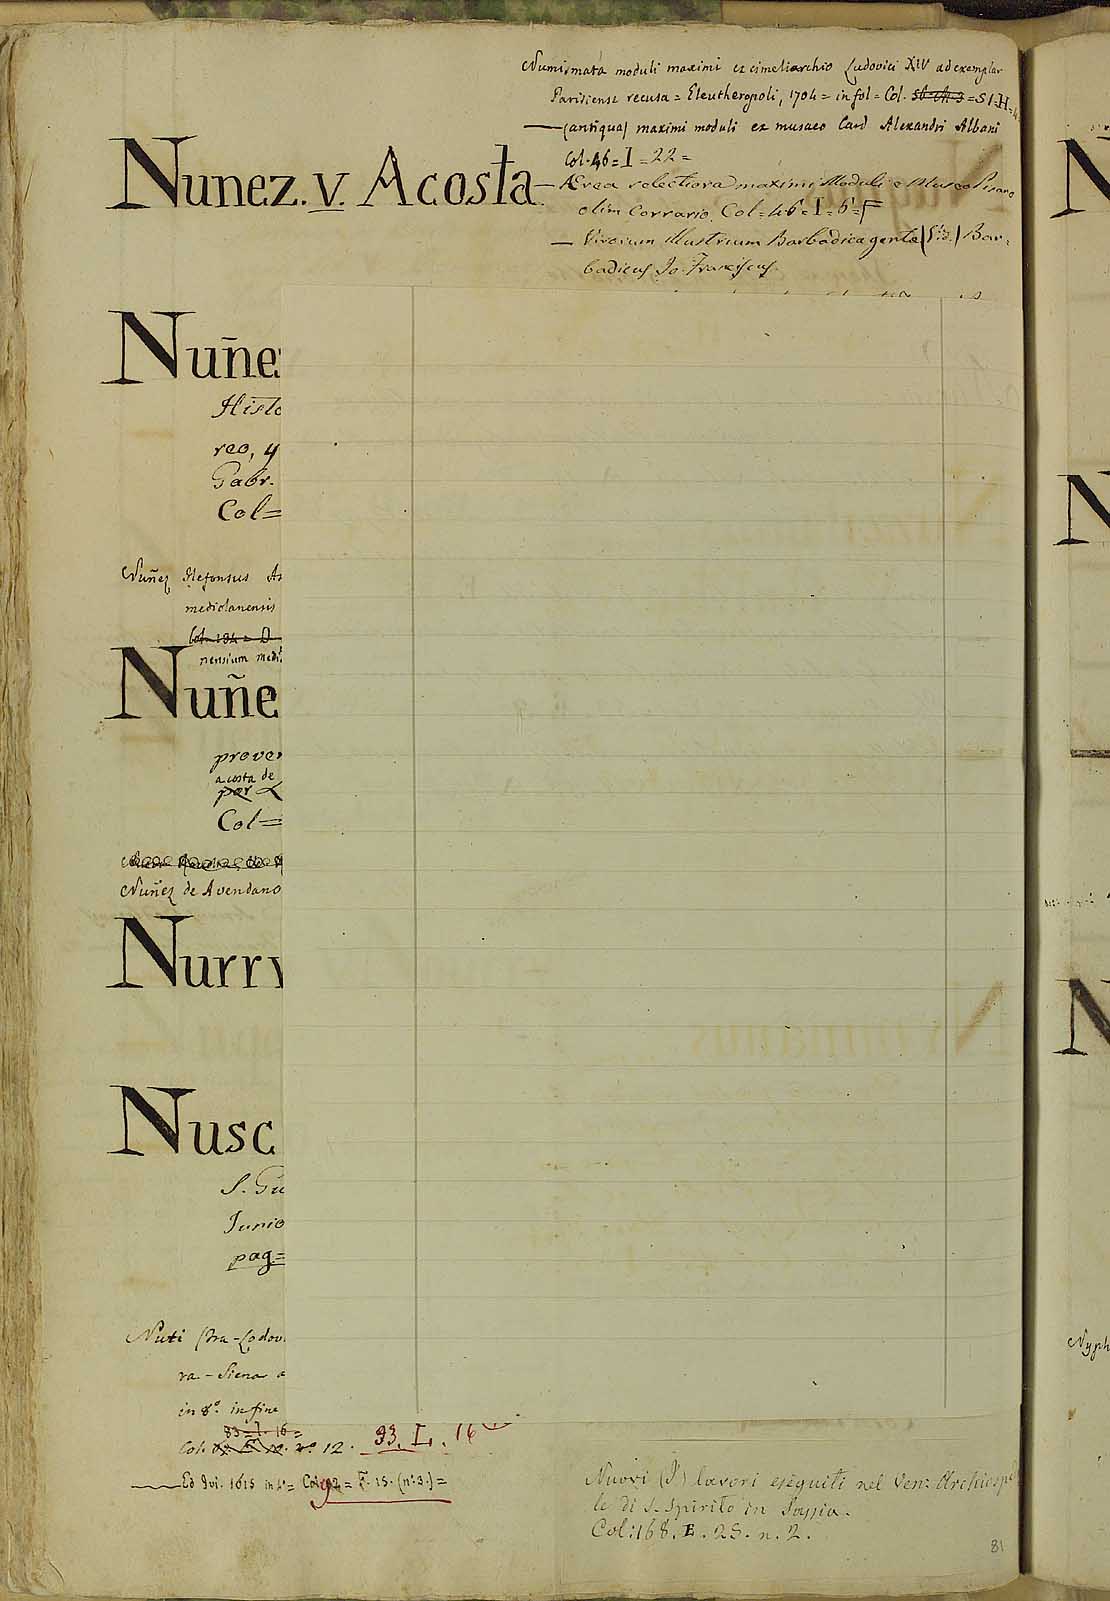 Numismata moduli maximi ex cimeliarchio Ludovici XIV ad exemplar
Parisiense recusa = Eleutheropoli, 1704 = in fol = Col.
— (antiqua) maximi moduli ex musaeo Card Alexandri Albani
Col. 46 = I = 22 =
Nunez. v. Acosta
— Ærea selectiora maximi Moduli e Museo Pisano
olim Corrario. Col = 46 = I = 6 = F
— Virorum illustrium Barbadica gente (Vid.) Bar=
badicus Jo. Franciscus.
Nuñe
Histo
reo, y
Gabr.
Col=
Nuñez Ildefonsus
mediolanensis
Col 194 = D
nensium
Nuñe
prover
acosta de
por
Col=
Nuñez de Avendano
Nurry
Nusc
S. Gu
Junio
pag=
Nuti (Fra-Lodov
ra - Siena a
in 8° in fine
83 = I. 16 =
Col. n° 12. 93. I. 16
— Ed Ivi. 1615 in 4° = Col 92 = F. 15. (n° 3.) =
Nuovi (I) lavori eseguiti nel Ven: Archiosp
le di S. Spirito in Sassia.
Col: 168. E. 25. n. 2.
81
N
N
N
Nyph